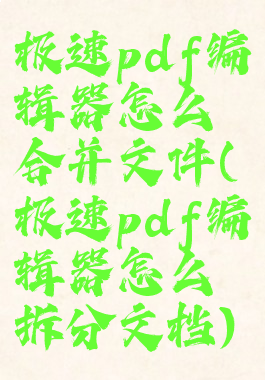 极速pdf编
辑器怎么
合并文件(
极速pdf编
辑器怎么
拆分文档)